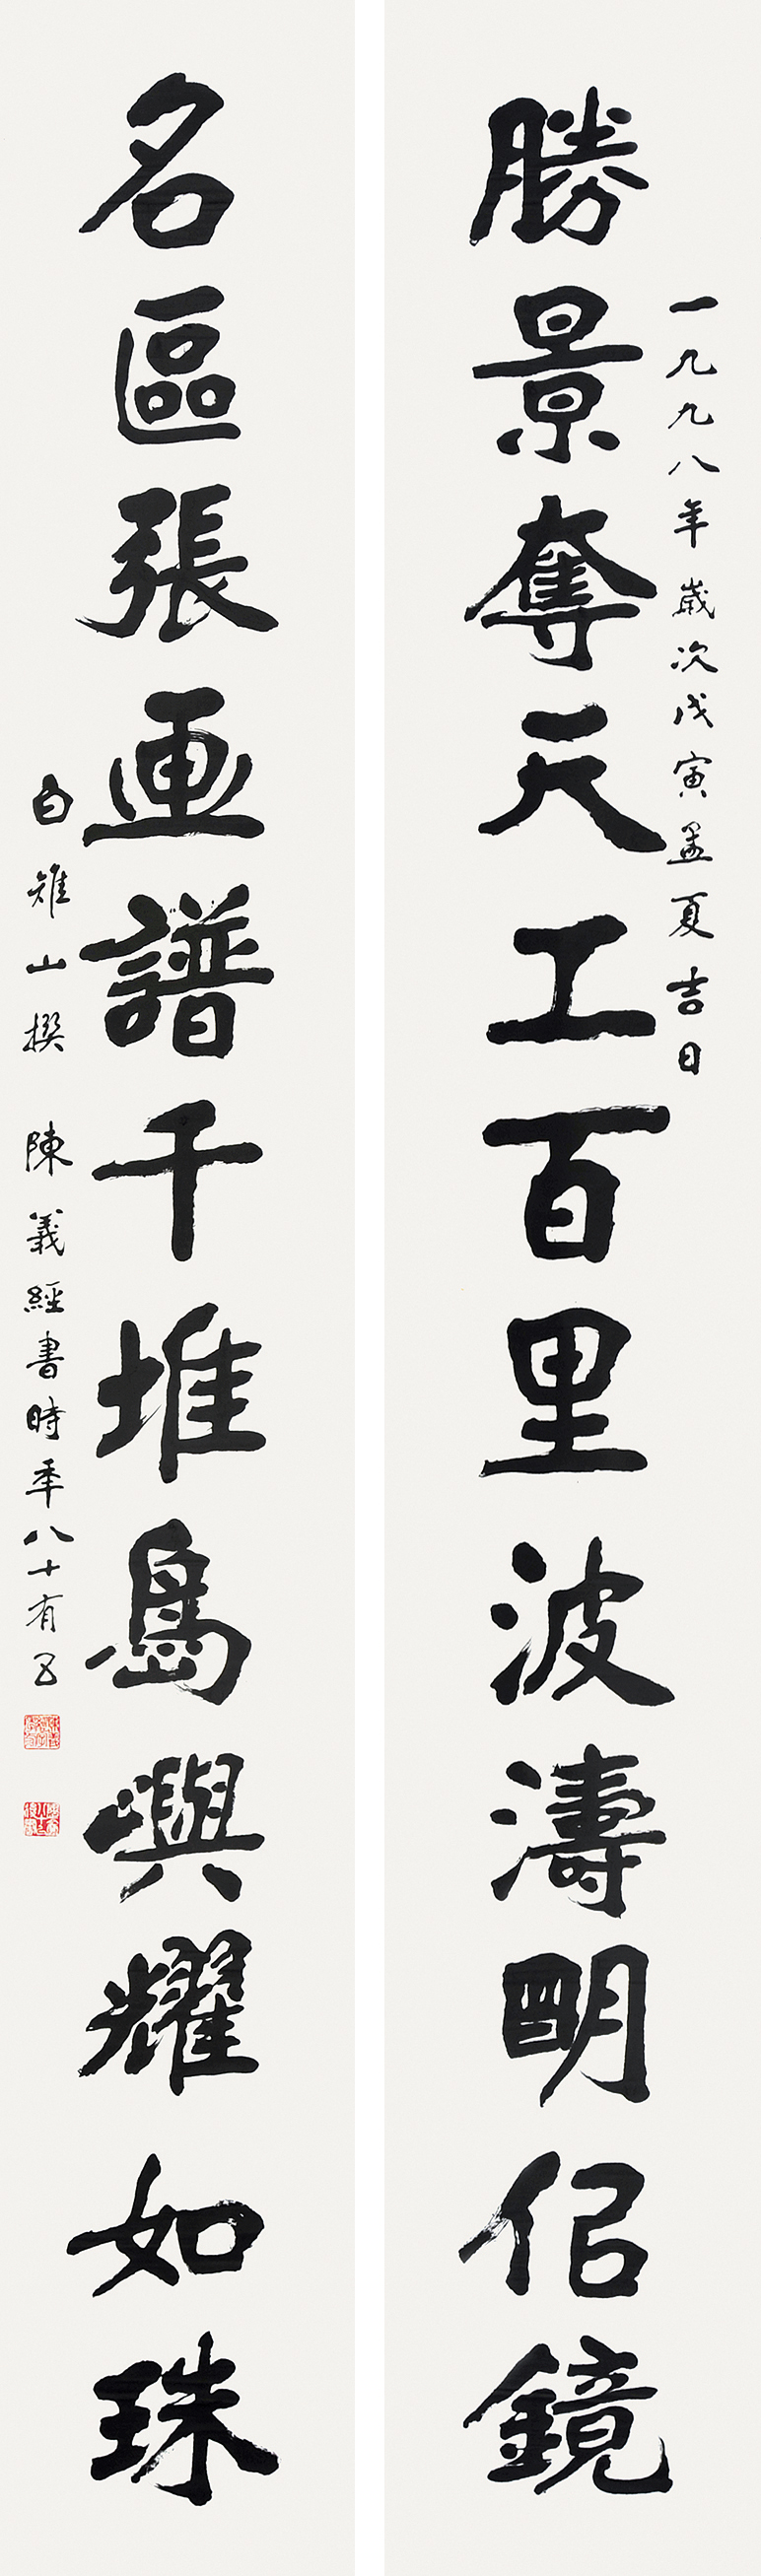 一九九八年歲次戊寅孟夏吉日
勝景奪天工百里波濤明佀鏡
名區張画譜千堆島嶼耀如珠
白雉山撰 陳義經書時年八十有五